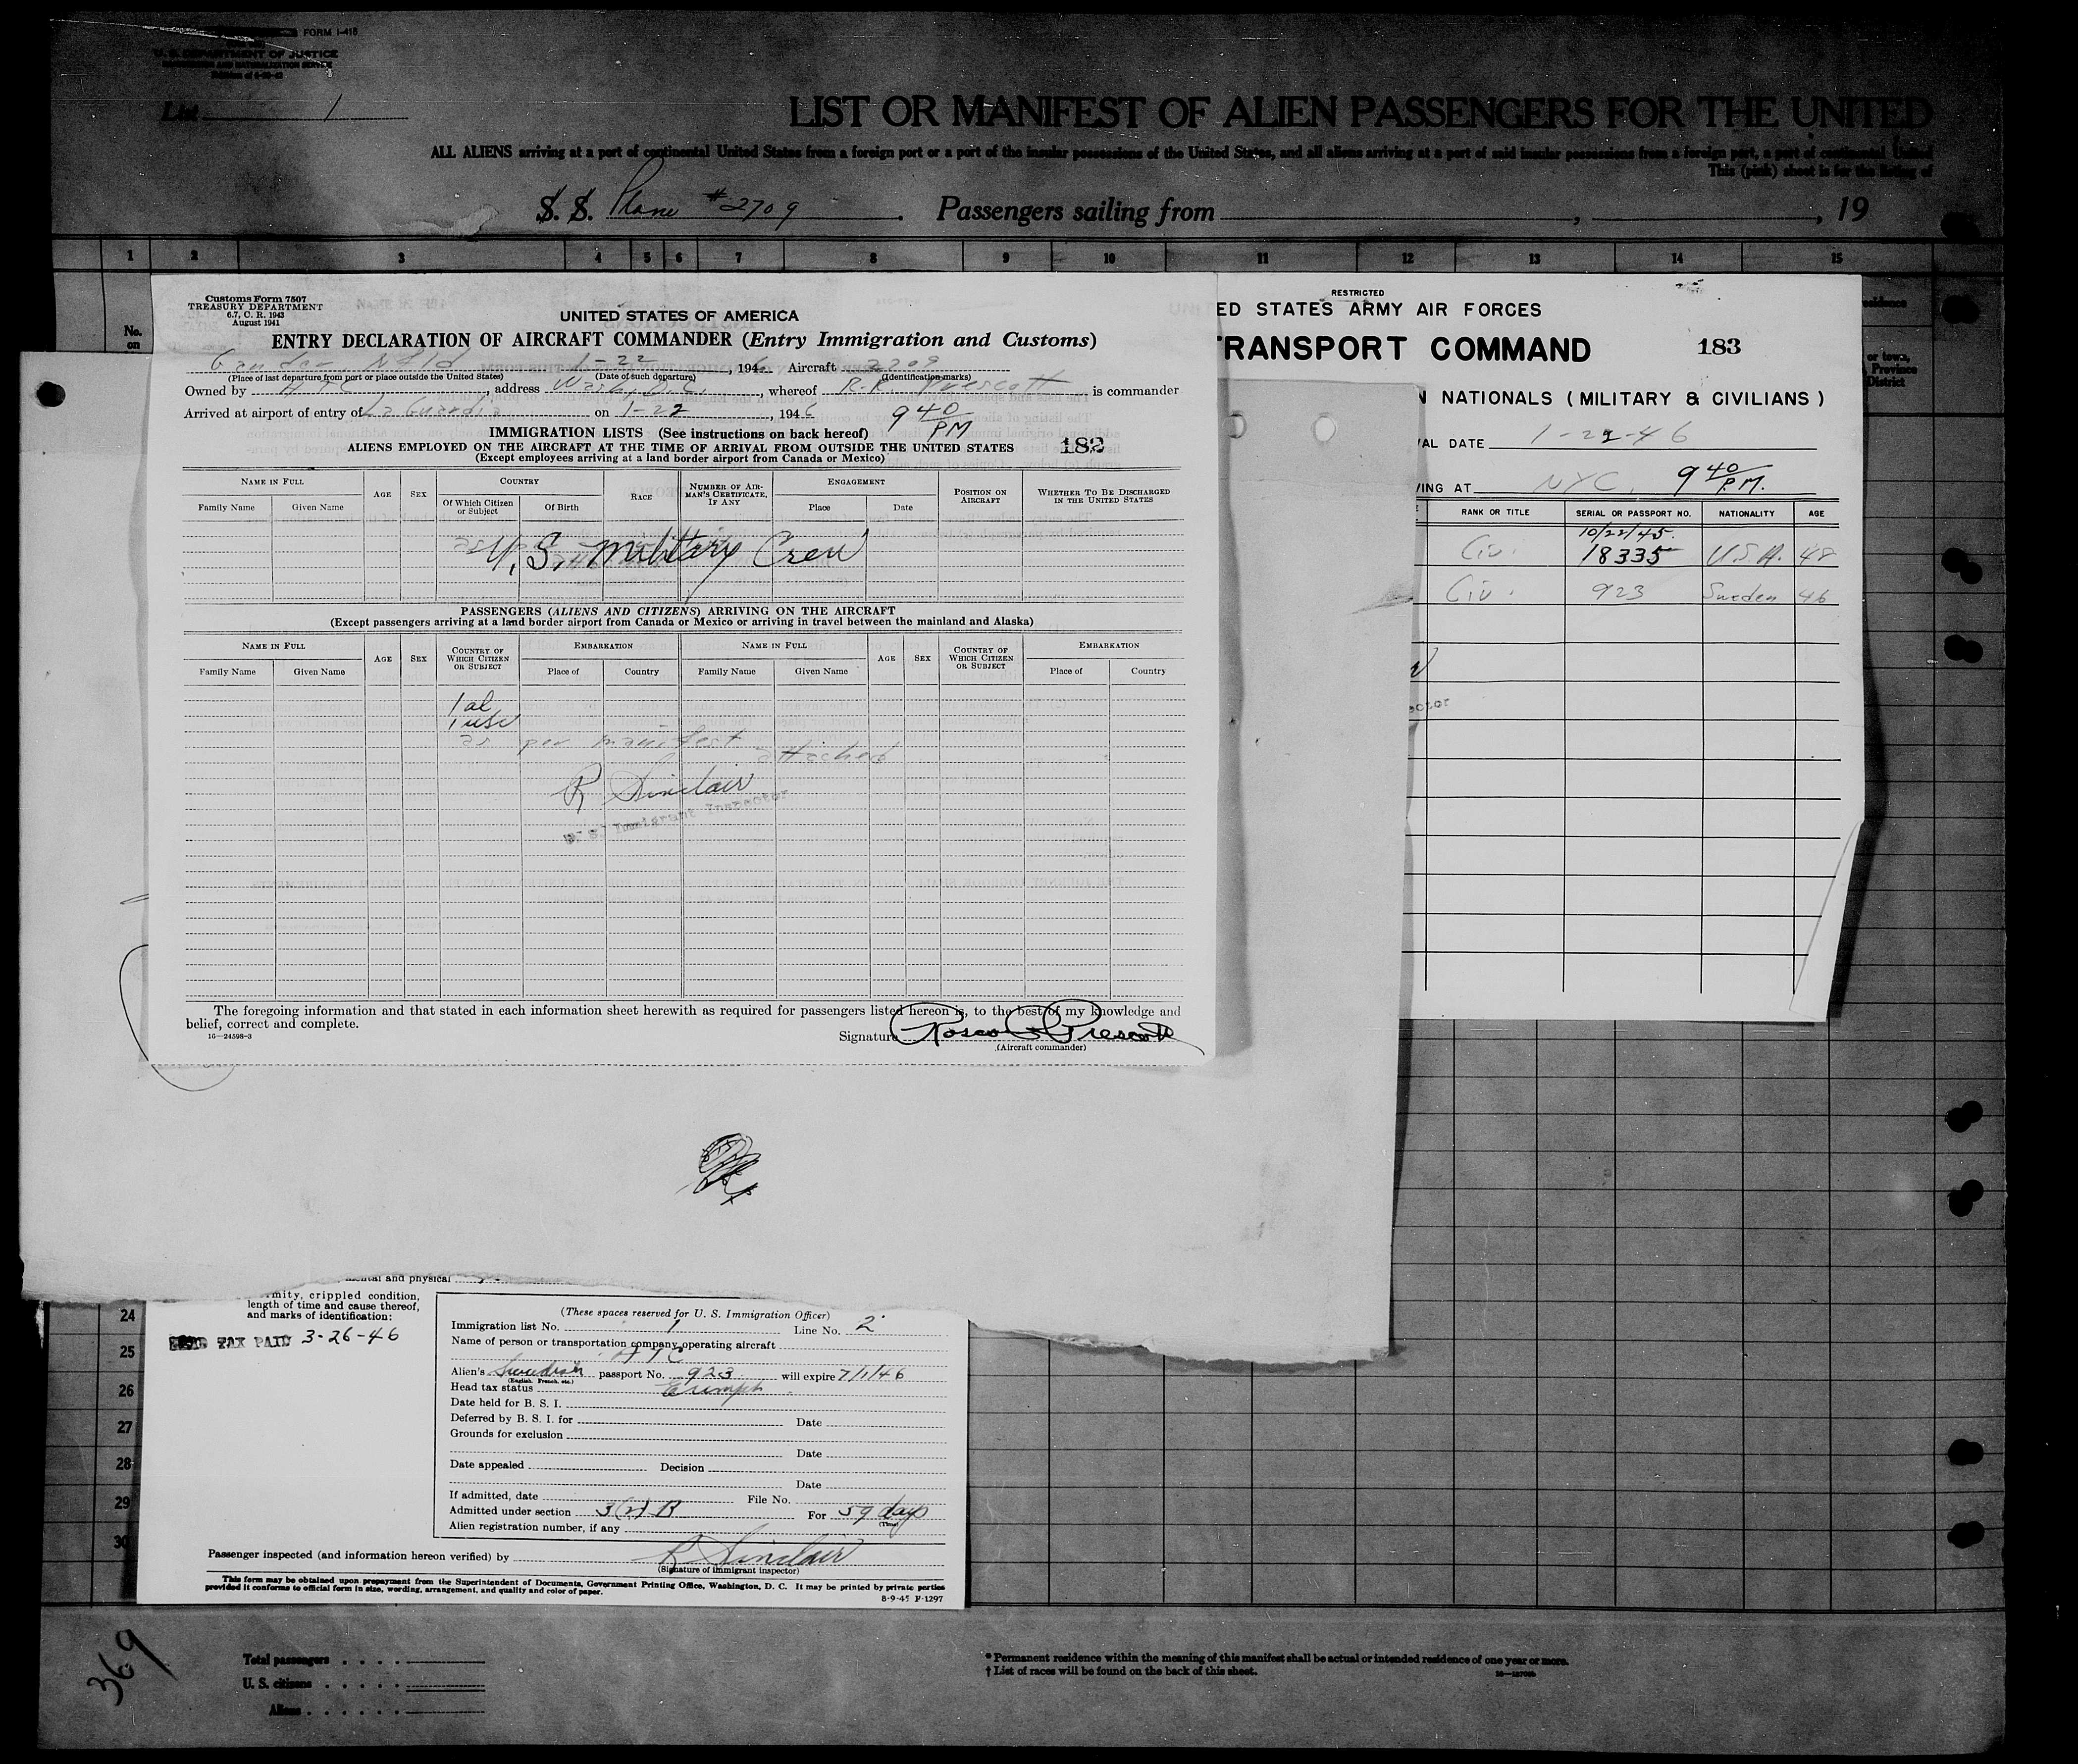 FORM I-415
U. S. DEPARTMENT OF JUSTICE
IMMIGRATION AND NATURALIZATION SERVICE
List 1
LIST OR MANIFEST OF ALIEN PASSENGERS FOR THE UNITED
ALL ALIENS arriving at a port of continental United States from a foreign port or a port of the insular possessions of the United States, and all aliens arriving at a port of said insular possessions from a foreign port, a port of continental United
This (pink) sheet is for the listing of
S. S. Plane #2709. Passengers sailing from , , 19
1 2 3 4 5 6 7 8 9 10 11 12 13 14 15
No.
on
Customs Form 7507
TREASURY DEPARTMENT
6.7, C. R. 1943
August 1941
UNITED STATES OF AMERICA
ENTRY DECLARATION OF AIRCRAFT COMMANDER (Entry Immigration and Customs)
Gander, Nfld 1-22, 1946 Aircraft 2709
(Place of last departure from port or place outside the United States) (Date of such departure) (Identification marks)
Owned by ATC, address Wash, D.C., whereof R.R. Prescott is commander
Arrived at airport of entry of La Guardia on 1-22, 1946 9 40 PM
IMMIGRATION LISTS (See instructions on back hereof)
182
ALIENS EMPLOYED ON THE AIRCRAFT AT THE TIME OF ARRIVAL FROM OUTSIDE THE UNITED STATES
(Except employees arriving at a land border airport from Canada or Mexico)
NAME IN FULL AGE SEX COUNTRY RACE NUMBER OF AIRMAN'S CERTIFICATE, IF ANY ENGAGEMENT POSITION ON AIRCRAFT WHETHER TO BE DISCHARGED IN THE UNITED STATES
Family Name Given Name Of Which Citizen or Subject Of Birth Place Date
U.S. Military Crew
PASSENGERS (ALIENS AND CITIZENS) ARRIVING ON THE AIRCRAFT
(Except passengers arriving at a land border airport from Canada or Mexico or arriving in travel between the mainland and Alaska)
NAME IN FULL AGE SEX COUNTRY OF WHICH CITIZEN OR SUBJECT EMBARKATION NAME IN FULL AGE SEX COUNTRY OF WHICH CITIZEN OR SUBJECT EMBARKATION
Family Name Given Name Place of Country Family Name Given Name Place of Country
1 al
1 usc
as per manifest attached
R Sinclair
U. S. Immigrant Inspector
The foregoing information and that stated in each information sheet herewith as required for passengers listed hereon is, to the best of my knowledge and
belief, correct and complete.
16—24598-3
Signature Roscoe R Prescott
(Aircraft commander)
RESTRICTED
ED STATES ARMY AIR FORCES
TRANSPORT COMMAND 183
N NATIONALS (MILITARY & CIVILIANS)
VAL DATE 1-22-46
VING AT NYC. 9 40 P.M.
RANK OR TITLE SERIAL OR PASSPORT NO. NATIONALITY AGE
10/22/45
Civ. 18335 U.S.A. 48
Civ. 923 Sweden 46
ector
or town,
Province
District
mental and physical
rmity, crippled condition,
length of time and cause thereof,
and marks of identification:
HEAD TAX PAID 3-26-46
24
25
26
27
28
29
30
(These spaces reserved for U. S. Immigration Officer)
Immigration list No. 1 Line No. 2
Name of person or transportation company operating aircraft
ATC
Alien's Swedish passport No. 923 will expire 7/1/46
(English, French, etc.)
Head tax status Exempt
Date held for B. S. I.
Deferred by B. S. I. for Date
Grounds for exclusion
Date
Date appealed Decision
Date
If admitted, date File No.
Admitted under section 3(2) B For 59 days
(Time)
Alien registration number, if any
Passenger inspected (and information hereon verified) by R Sinclair
(Signature of immigrant inspector)
This form may be obtained upon prepayment from the Superintendent of Documents, Government Printing Office, Washington, D. C. It may be printed by private parties
provided it conforms to official form in size, wording, arrangement, and quality and color of paper.
8-9-45 F-1297
369
Total passengers
U. S. citizens
Aliens
* Permanent residence within the meaning of this manifest shall be actual or intended residence of one year or more.
† List of races will be found on the back of this sheet.